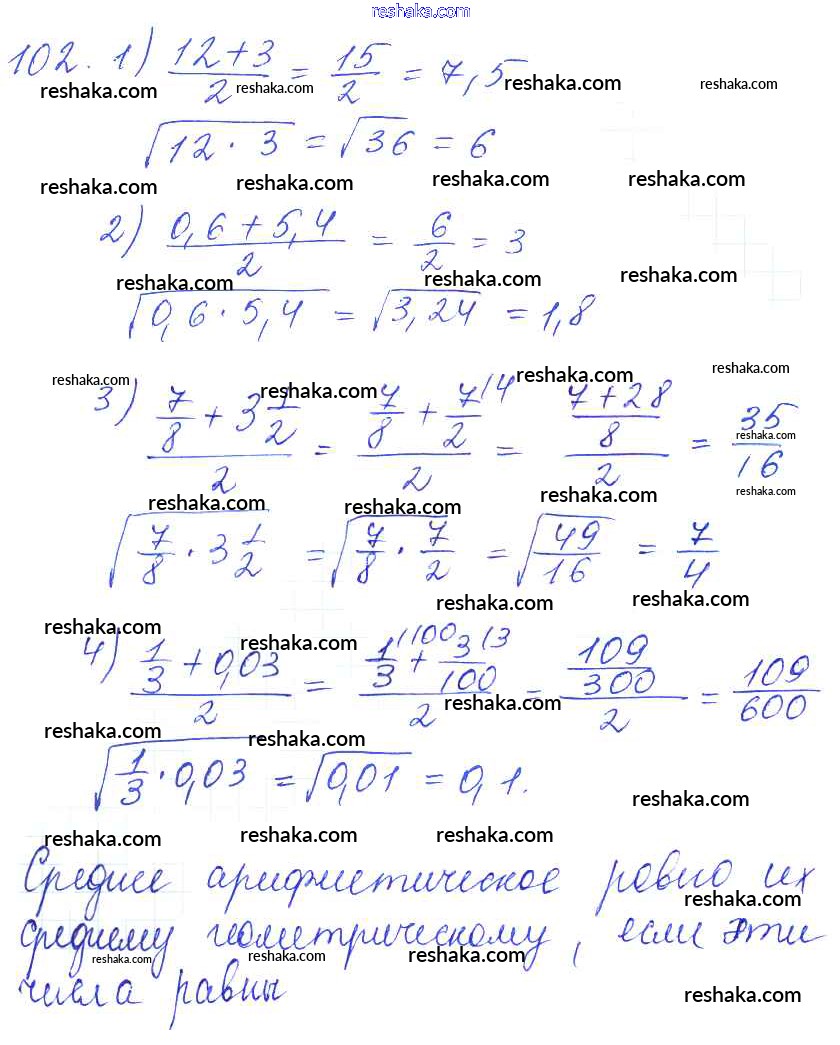 reshaka.com
102. 1) (12+3)/2 = 15/2 = 7,5
reshaka.com reshaka.com reshaka.com reshaka.com
√(12 · 3) = √36 = 6
reshaka.com reshaka.com reshaka.com reshaka.com
2) (0,6 + 5,4)/2 = 6/2 = 3
reshaka.com reshaka.com reshaka.com
√(0,6 · 5,4) = √3,24 = 1,8
reshaka.com reshaka.com reshaka.com reshaka.com
3) (7/8 + 3 1/2)/2 = (7/8 + 7/2 ⁽⁴)/2 = ((7+28)/8)/2 = 35/16
reshaka.com reshaka.com
reshaka.com reshaka.com reshaka.com
√(7/8 · 3 1/2) = √(7/8 · 7/2) = √(49/16) = 7/4
reshaka.com reshaka.com
reshaka.com reshaka.com
4) (1/3 + 0,03)/2 = (1/3 ⁽¹⁰⁰ + 3/100 ⁽³)/2 = (109/300)/2 = 109/600
reshaka.com reshaka.com reshaka.com
√(1/3 · 0,03) = √0,01 = 0,1.
reshaka.com
reshaka.com reshaka.com reshaka.com
Среднее арифметическое равно их
reshaka.com
среднему геометрическому, если эти
reshaka.com reshaka.com reshaka.com
числа равны
reshaka.com